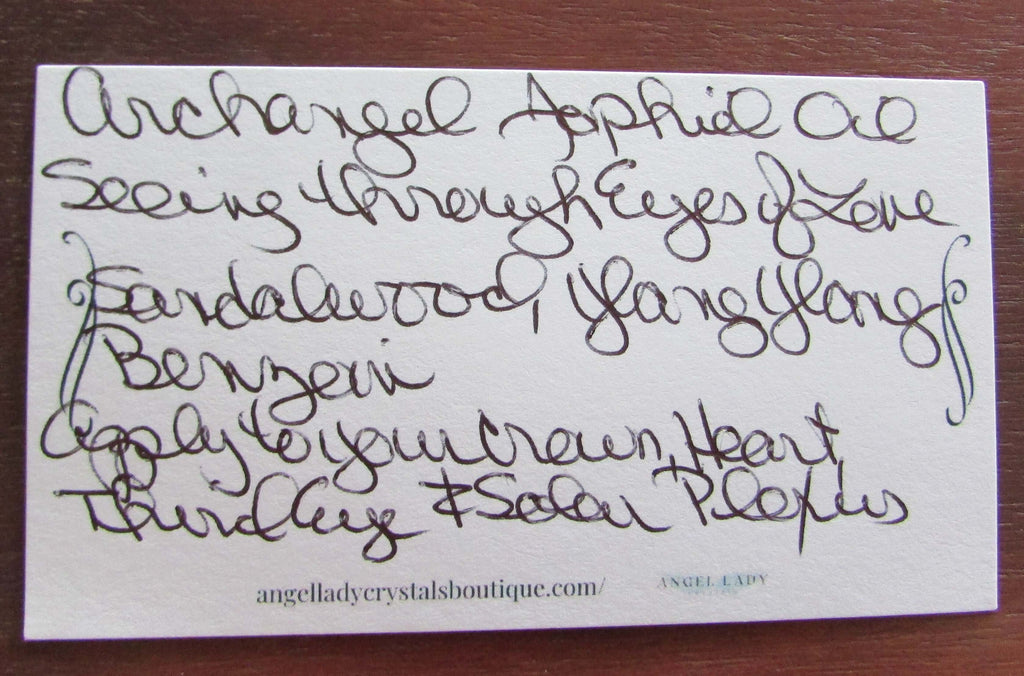 Archangel Jophiel Oil
Seeing through Eyes of Love
Sandalwood, Ylang Ylang
Benzoin
Apply to your Crown, Heart,
Third Eye & Solar Plexus
angelladycrystalsboutique.com/
ANGEL LADY